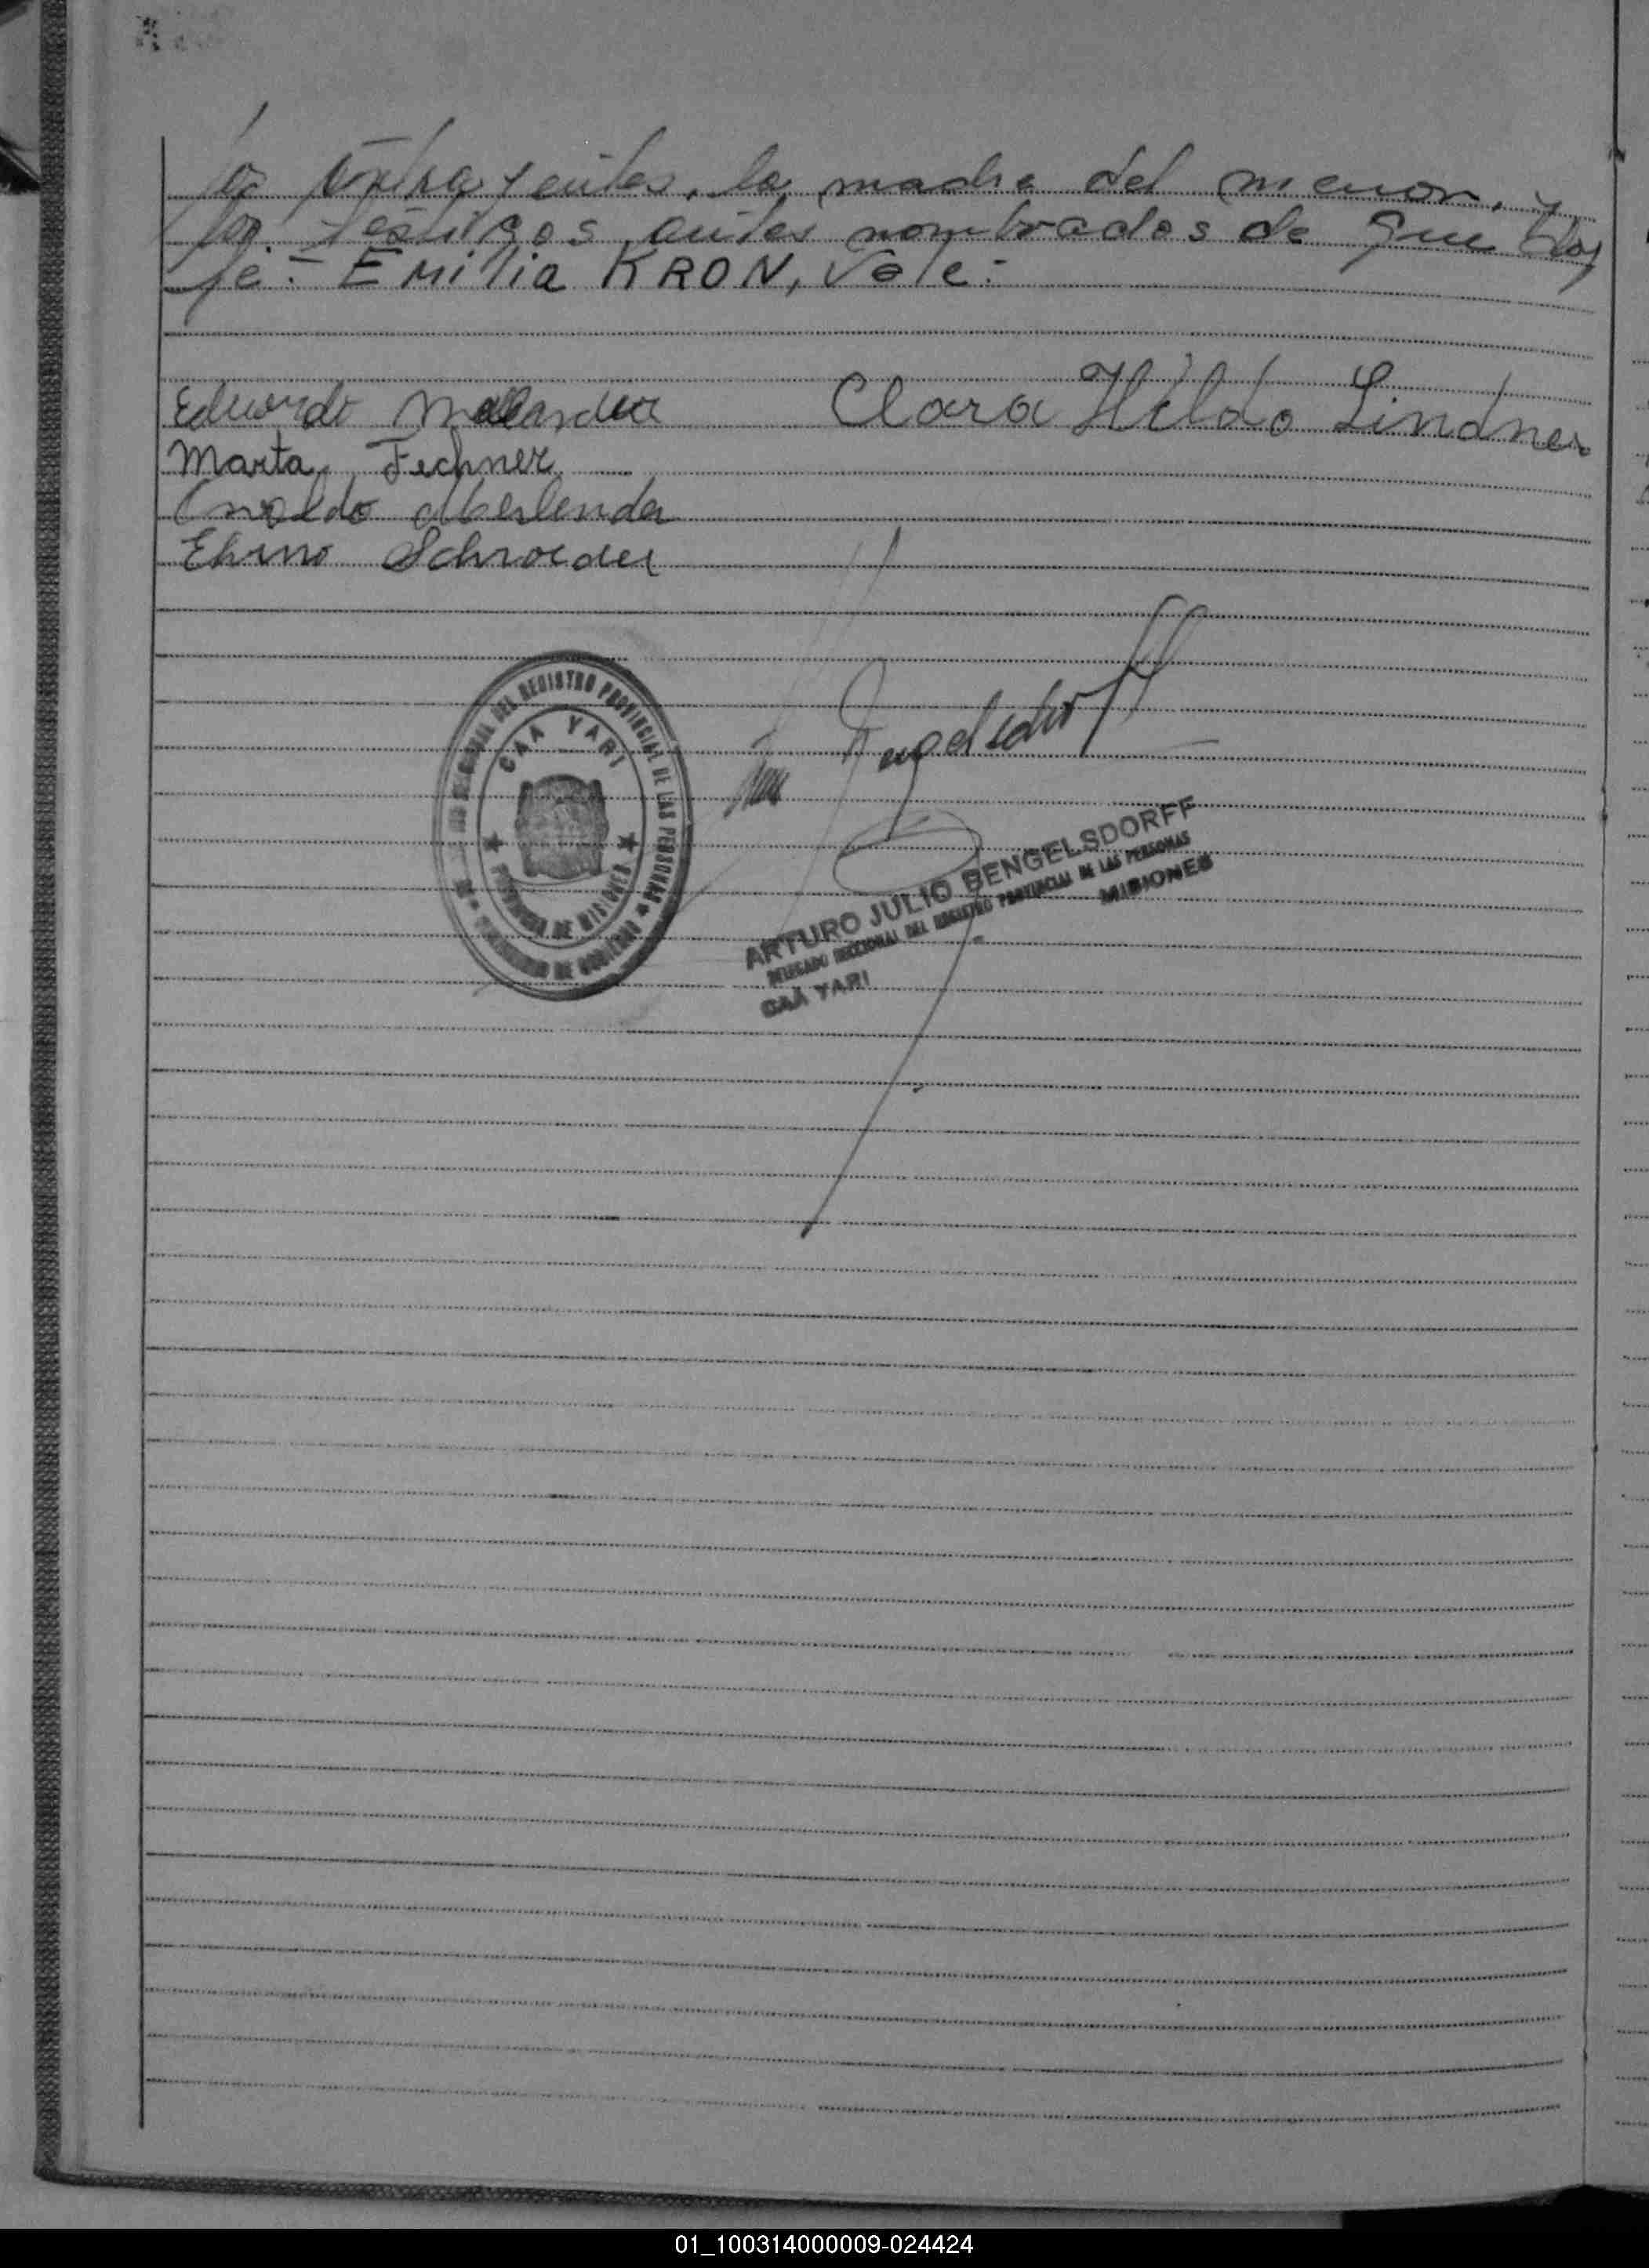 los contrayentes, la madre del menor, y
los testigos antes nombrados de que doy
fe:- Emilia KRON, Vale:-
Eduardo Clara Hilda Lindner
Marta Fechner
Schroeder
DEL REGISTRO PROVINCIAL DE LAS PERSONAS
CAA YARI
PROVINCIA DE MISIONES
DE GOBIERNO
ARTURO JULIO BENGELSDORFF
DELEGADO SECCIONAL DEL REGISTRO PROVINCIAL DE LAS PERSONAS
CAA YARI MISIONES
01_100314000009-024424